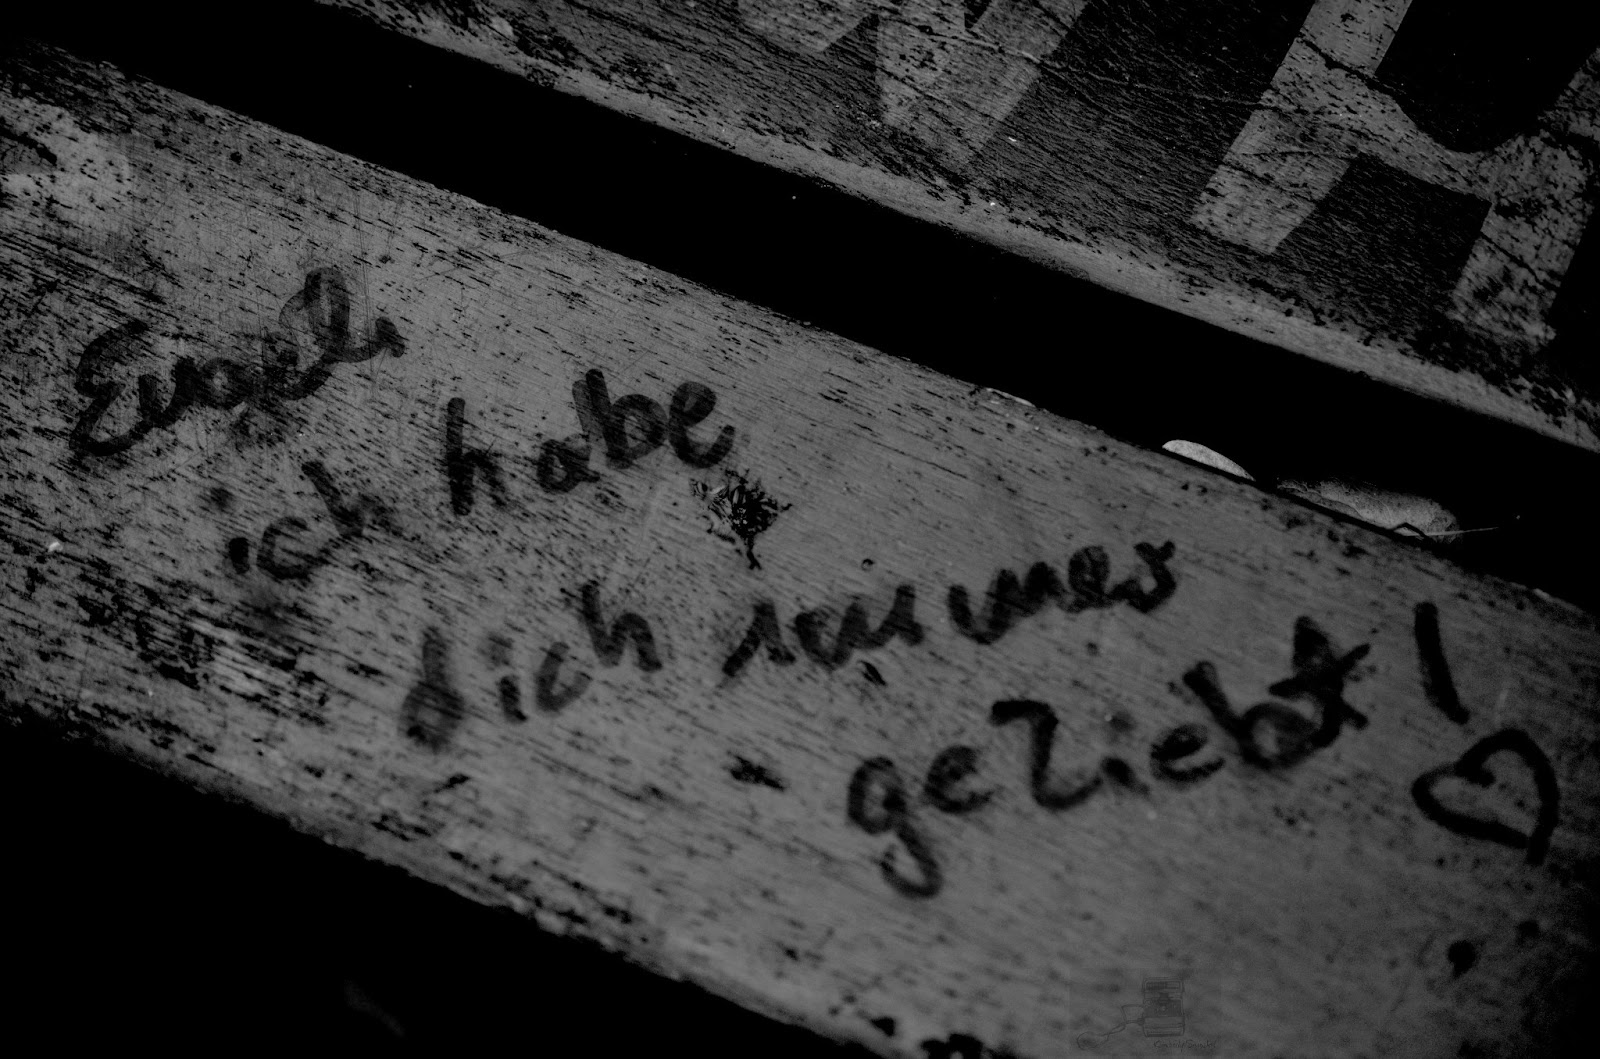 ich habe
dich immer
geliebt!